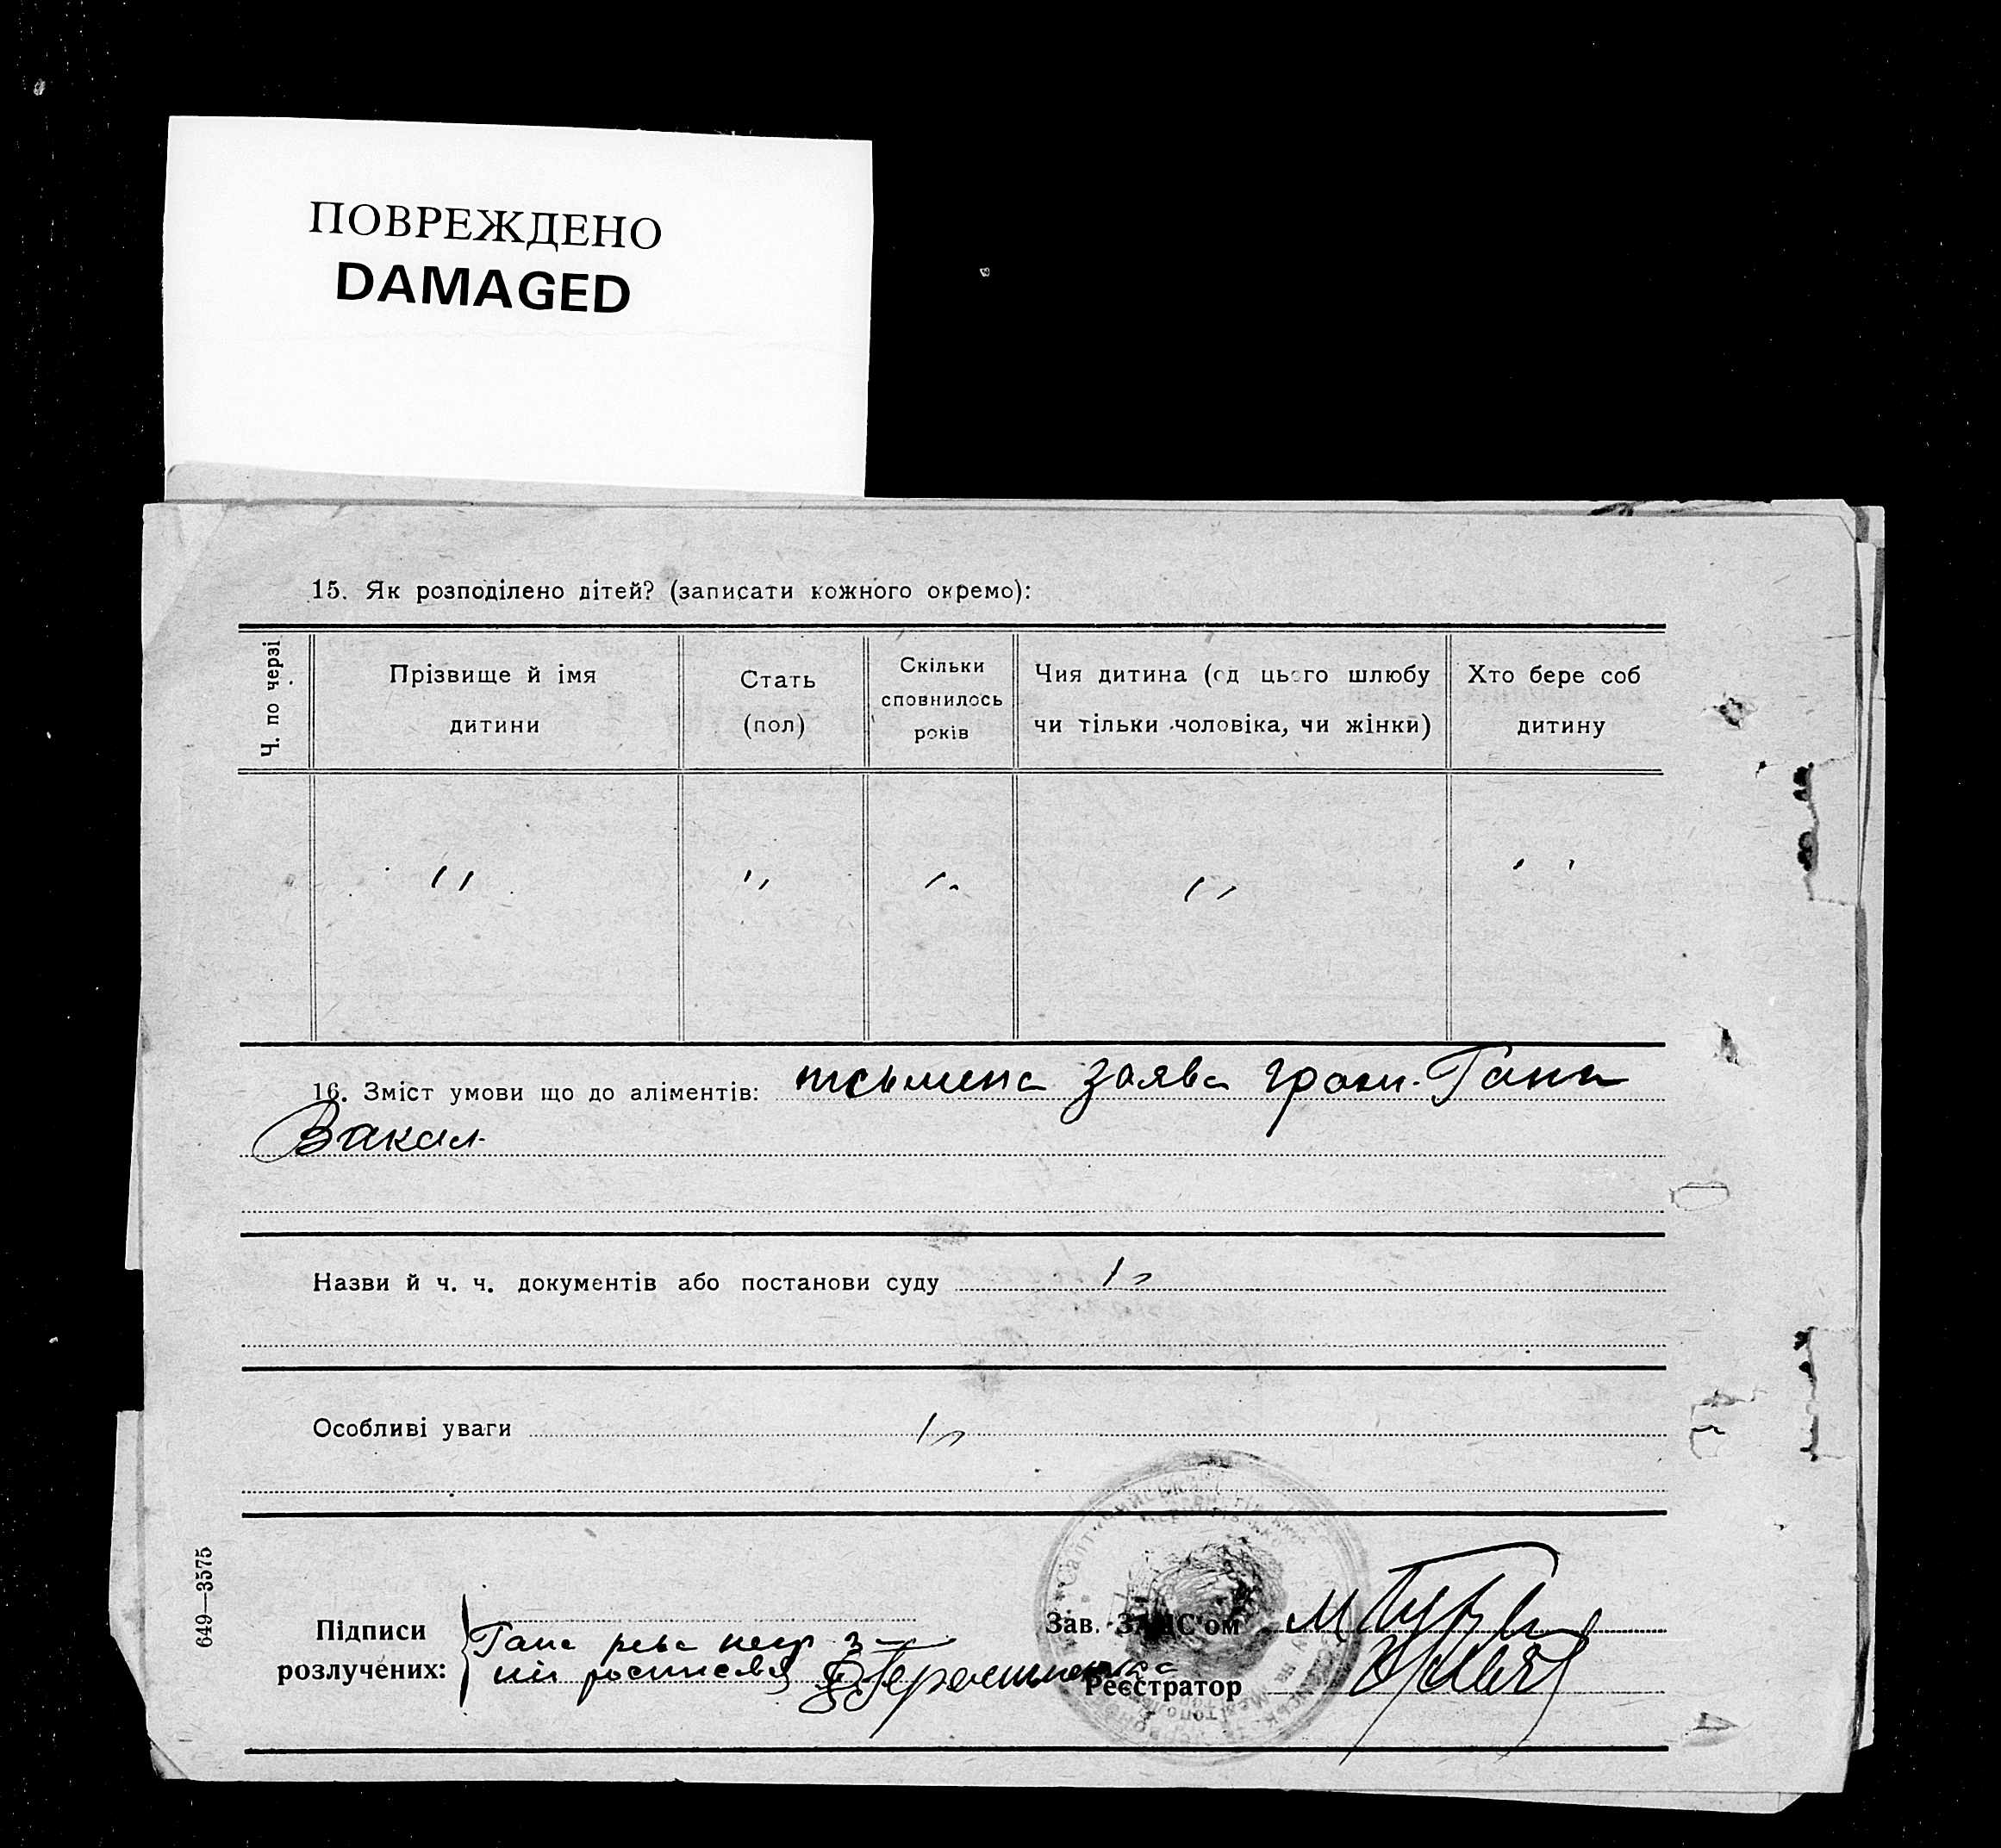 ПОВРЕЖДЕНО
DAMAGED
15. Як розподілено дітей? (записати кожного окремо):
Ч. по черзі
Прізвище й імя
дитини
Стать
(пол)
Скільки
сповнилось
років
Чия дитина (од цього шлюбу
чи тільки чоловіка, чи жінки)
Хто бере соб
дитину
〃 〃 〃 〃 〃
16. Зміст умови що до аліментів: заява грам. Гани
Вакал
Назви й ч. ч. документів або постанови суду 〃
Особливі уваги 〃
649—3575
Підписи
розлучених:
Гана
Зав. ЗАГС'ом
Реєстратор